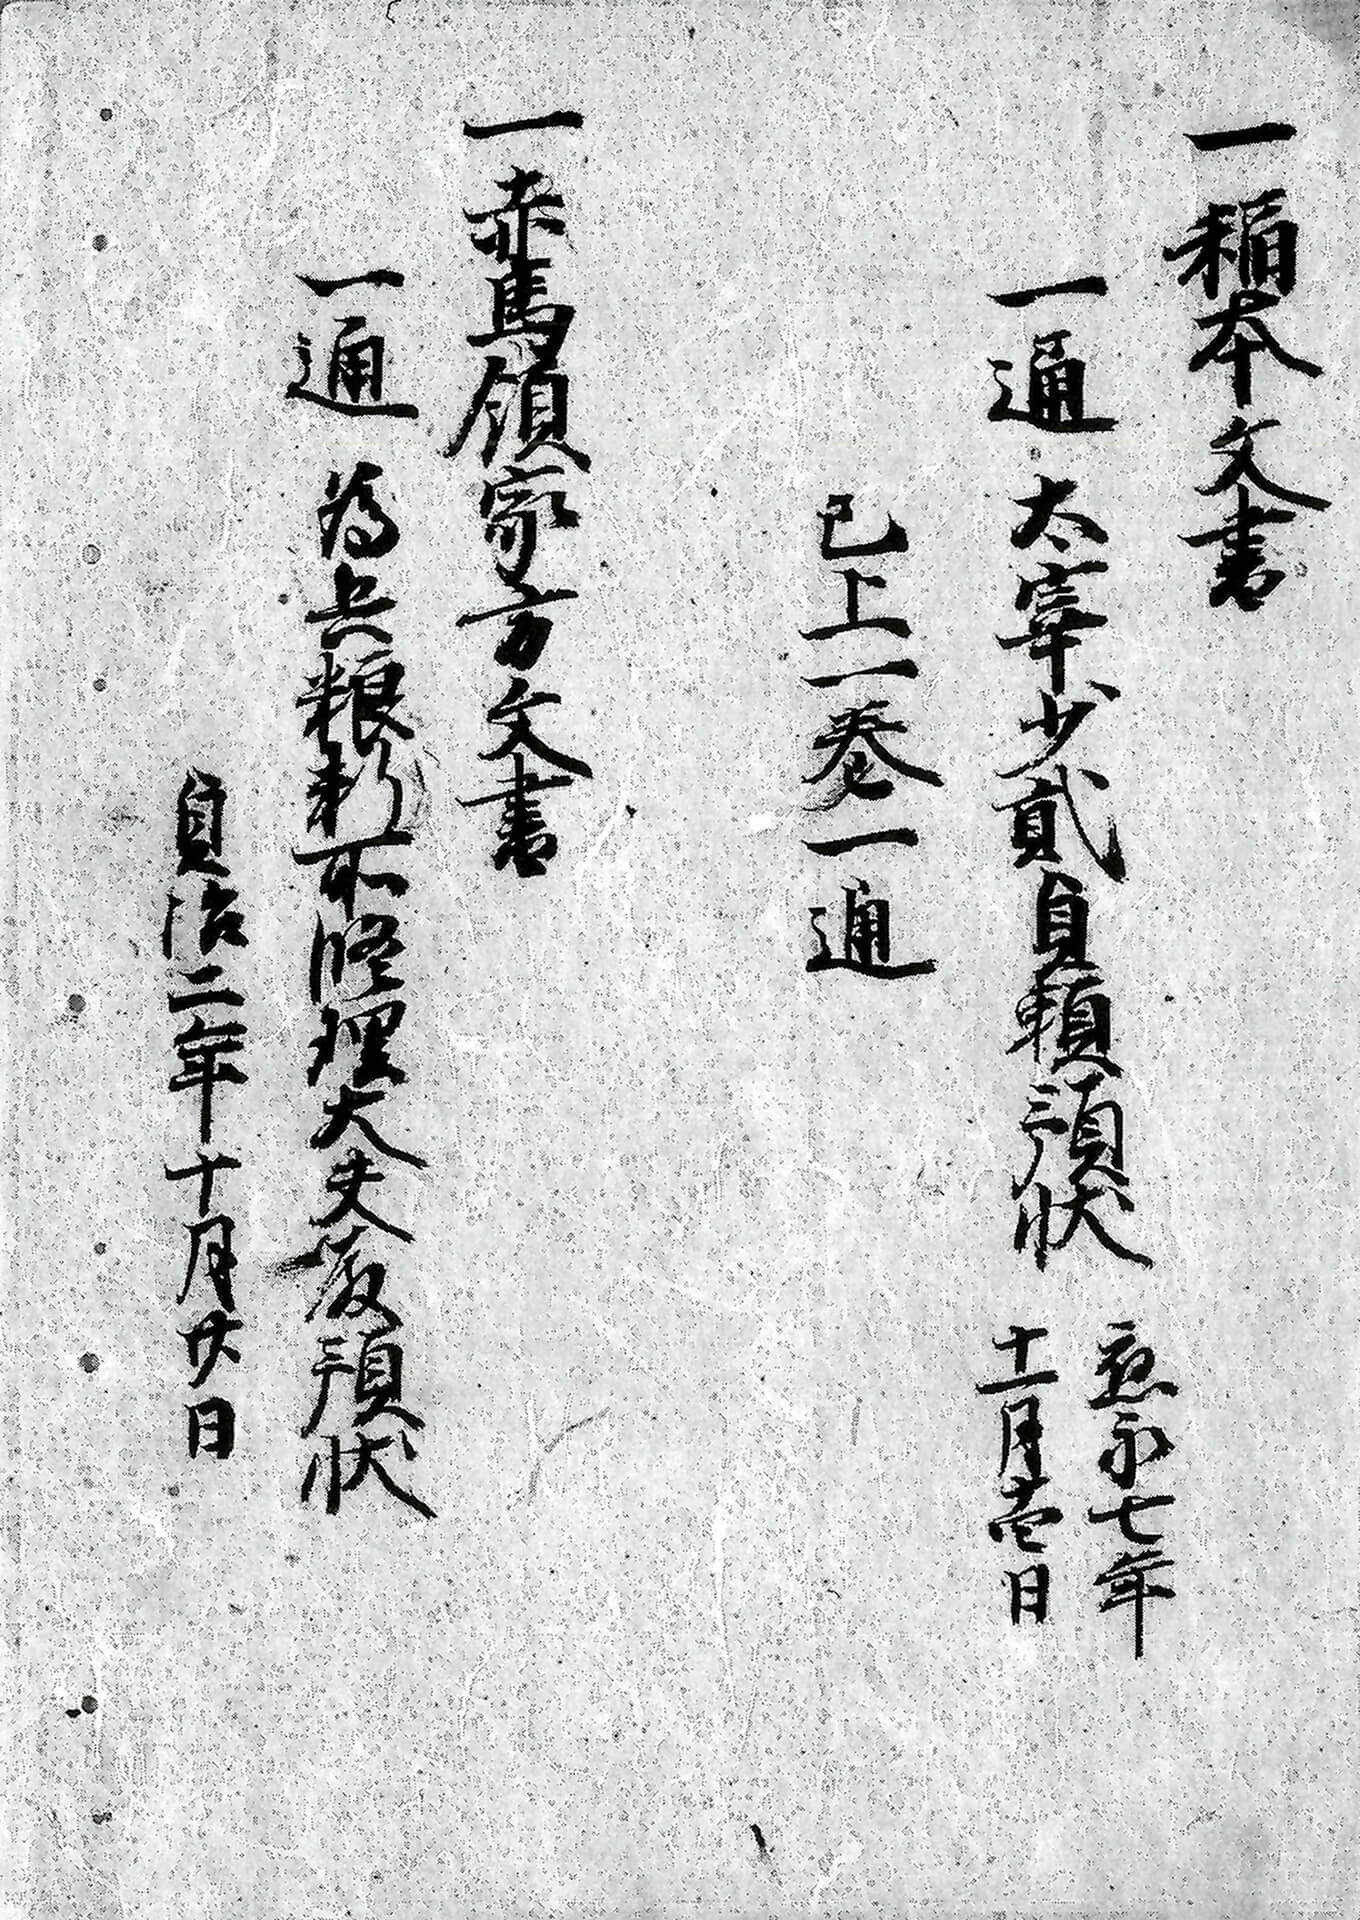 一稲本文書
一通太宰少貳貞頼預状
應永七年
十一月壱日
已上一巻一通
一赤馬領家方文書
一通為兵粮料所修理大夫義預状
貞治二年十月廿日